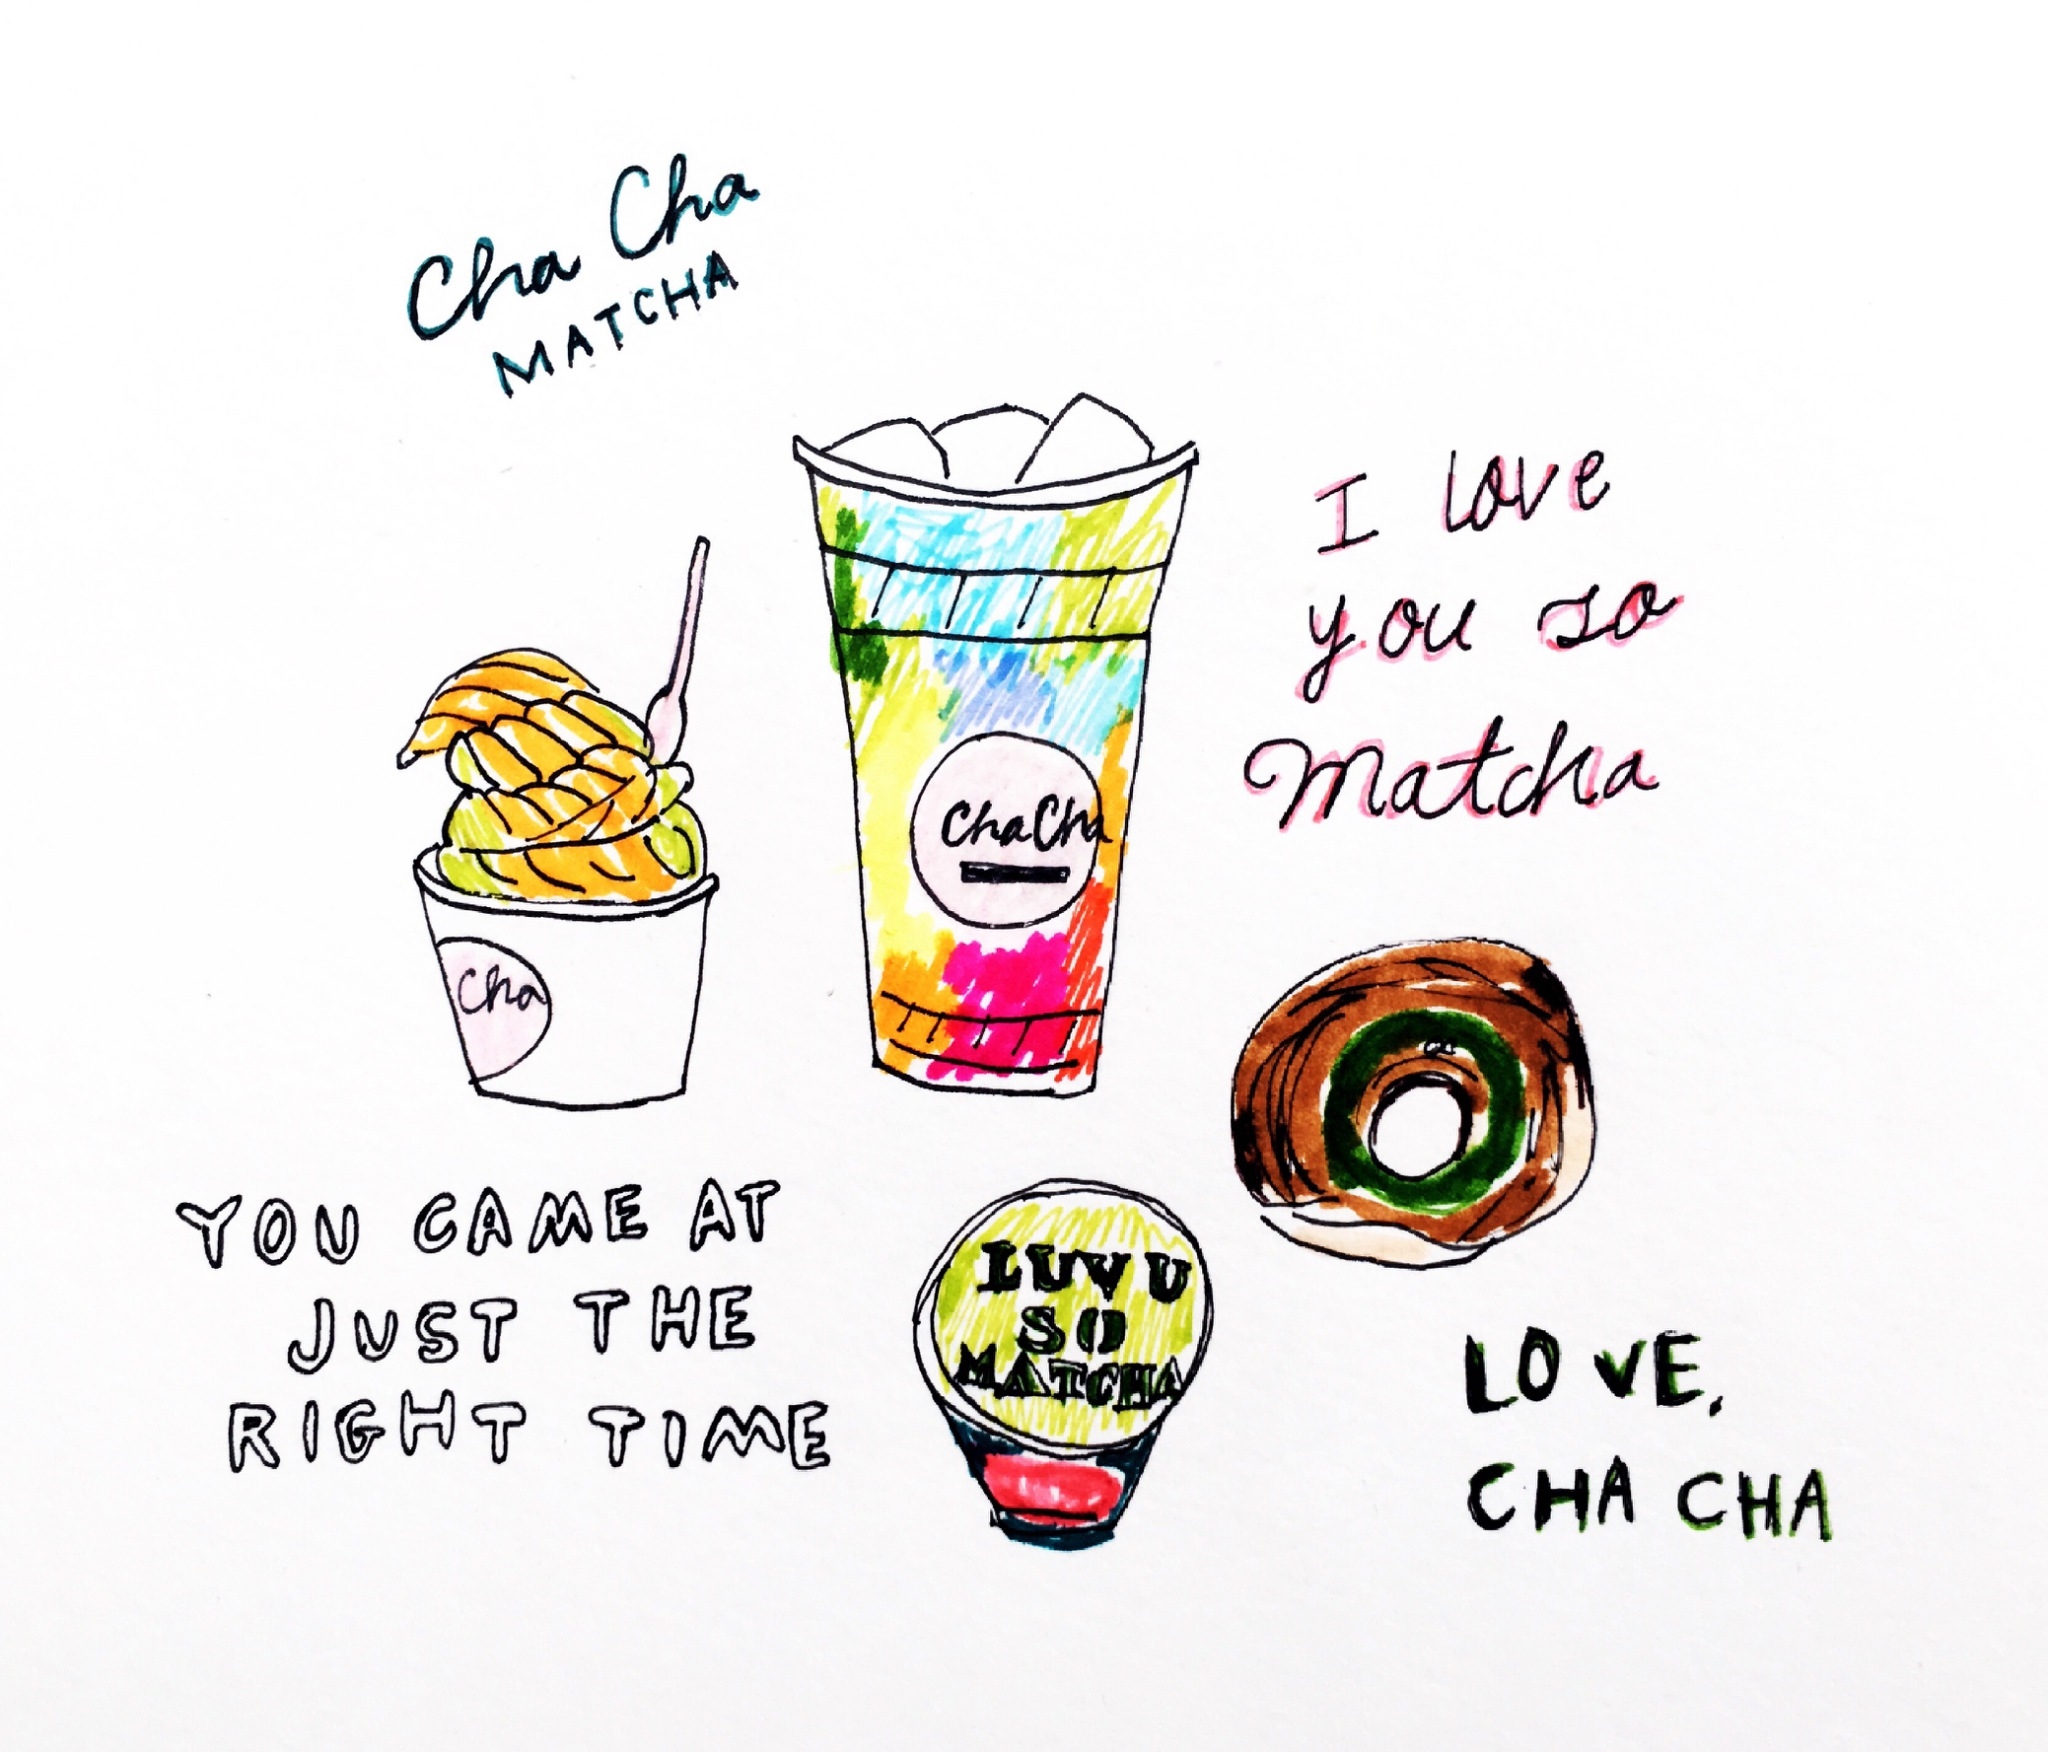 Cha Cha
MATCHA
I love
you so
Matcha
ChaCha
Cha
YOU CAME AT
JUST THE
RIGHT TIME
LUV U
SO
MATCHA
LOVE,
CHA CHA